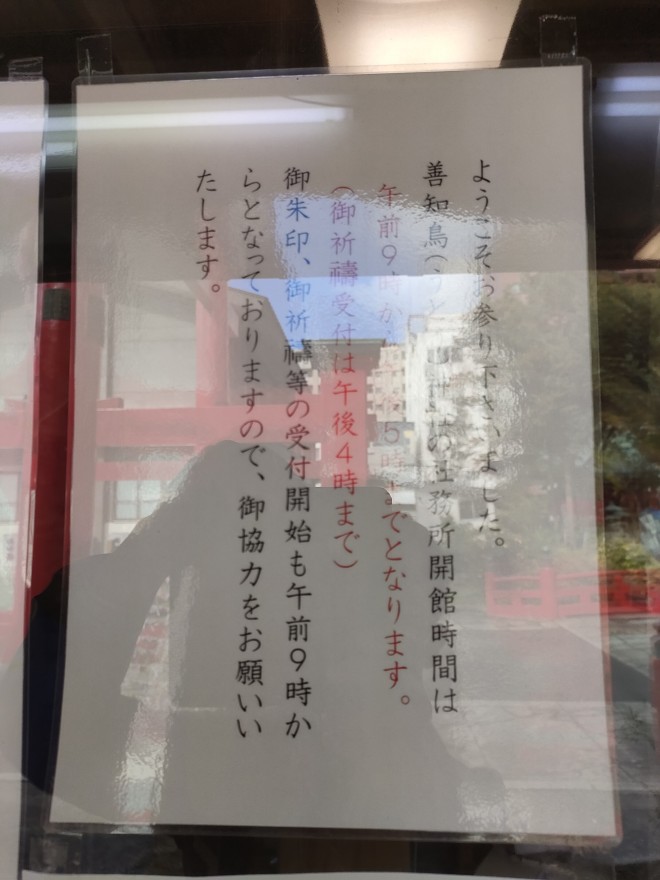 ようこそお参り下さいました。
善知鳥(うと 神社の社務所開館時間は
午前9時から午後5時までとなります。
(御祈禱受付は午後4時まで)
御朱印、御祈禱等の受付開始も午前9時か
らとなっておりますので、御協力をお願いい
たします。